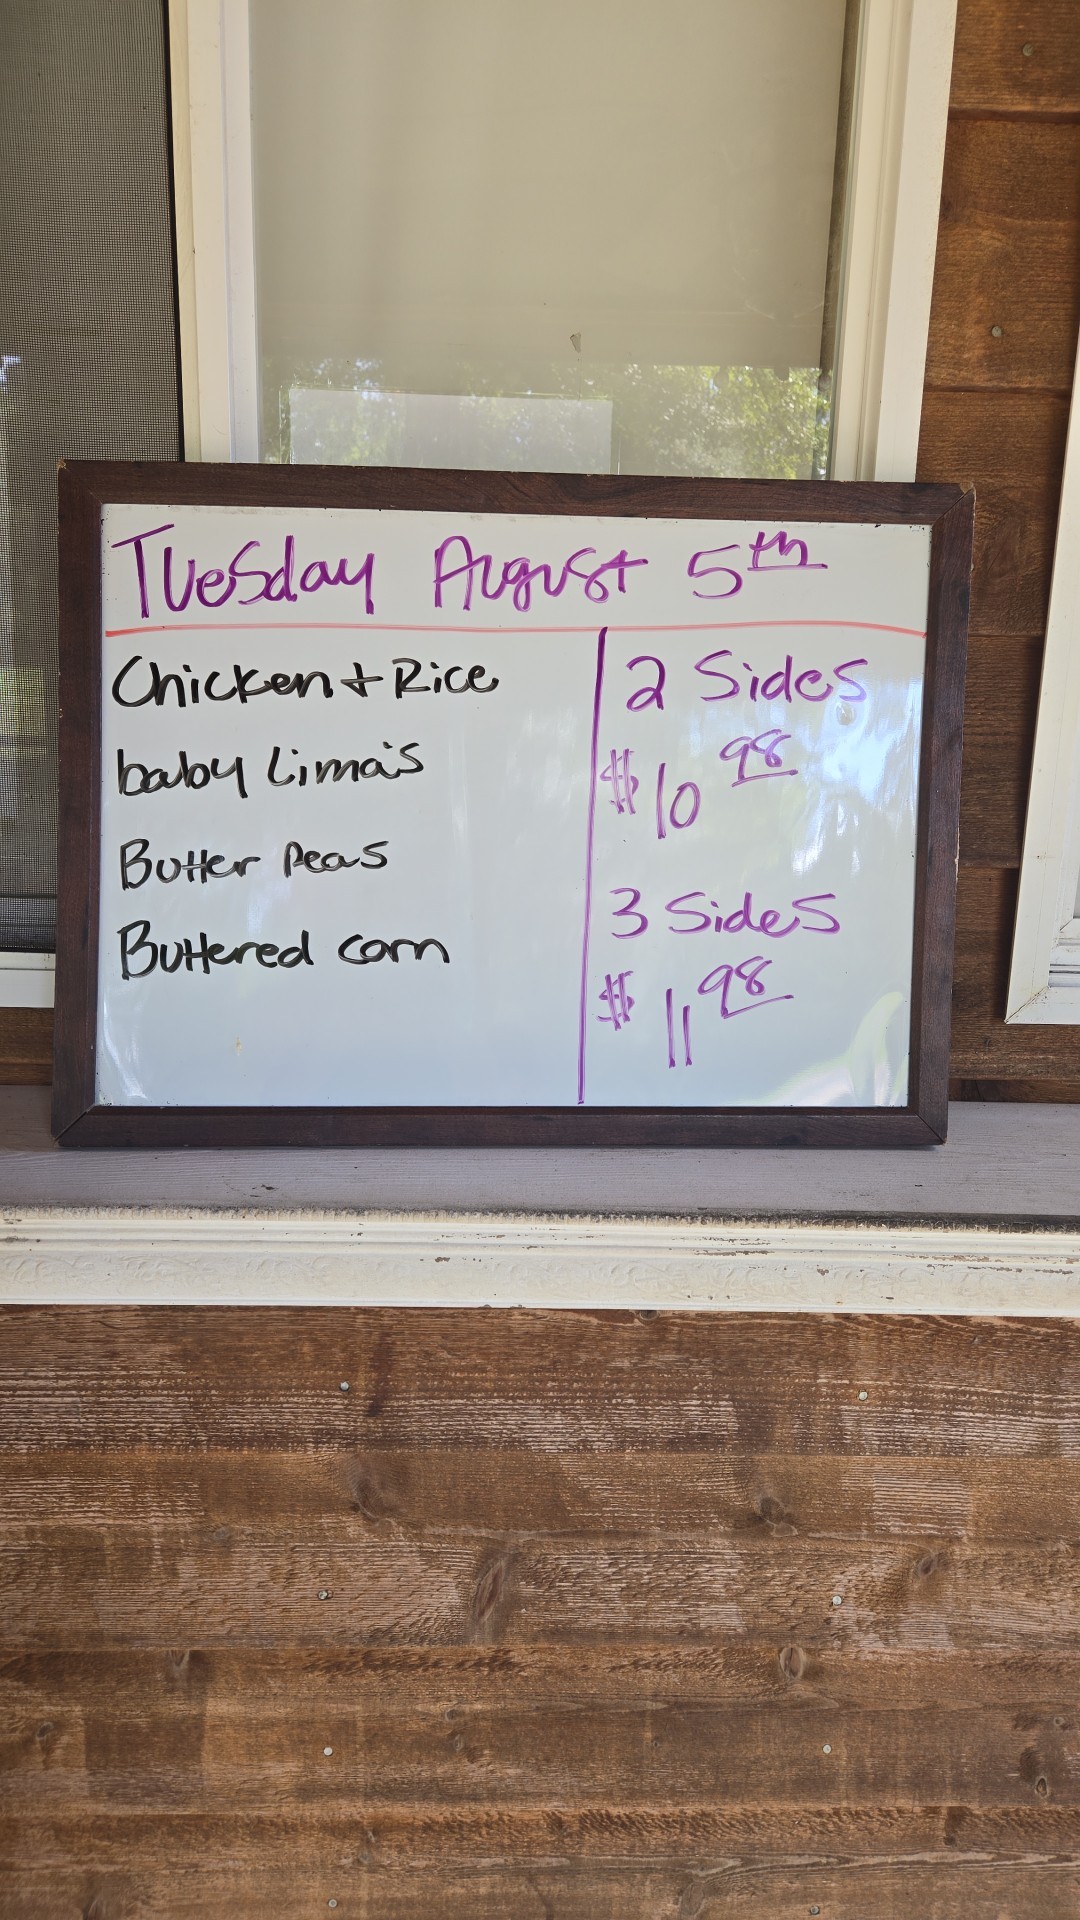 Tuesday August 5th
Chicken + Rice
baby Lima's
Butter Peas
Buttered corn
2 Sides
$10 98
3 Sides
$11 98